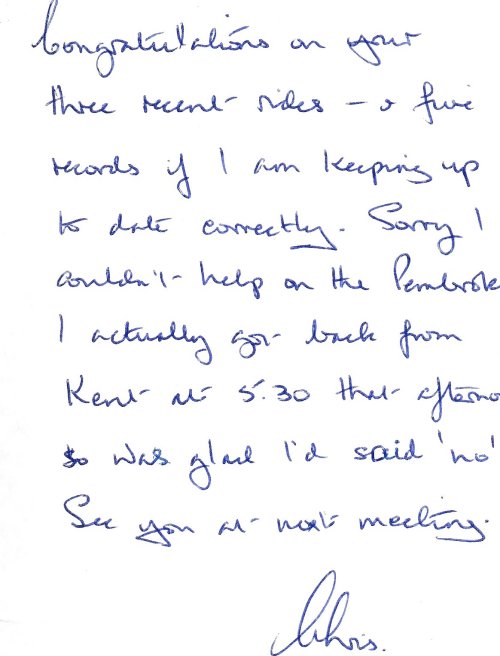 Congratulations on your
three recent rides – & five
records if I am keeping up
to date correctly. Sorry I
couldn't help on the Pembroke
I actually got back from
Kent at 5.30 that afterno
so was glad I'd said 'no'
See you at next meeting.
Chris.